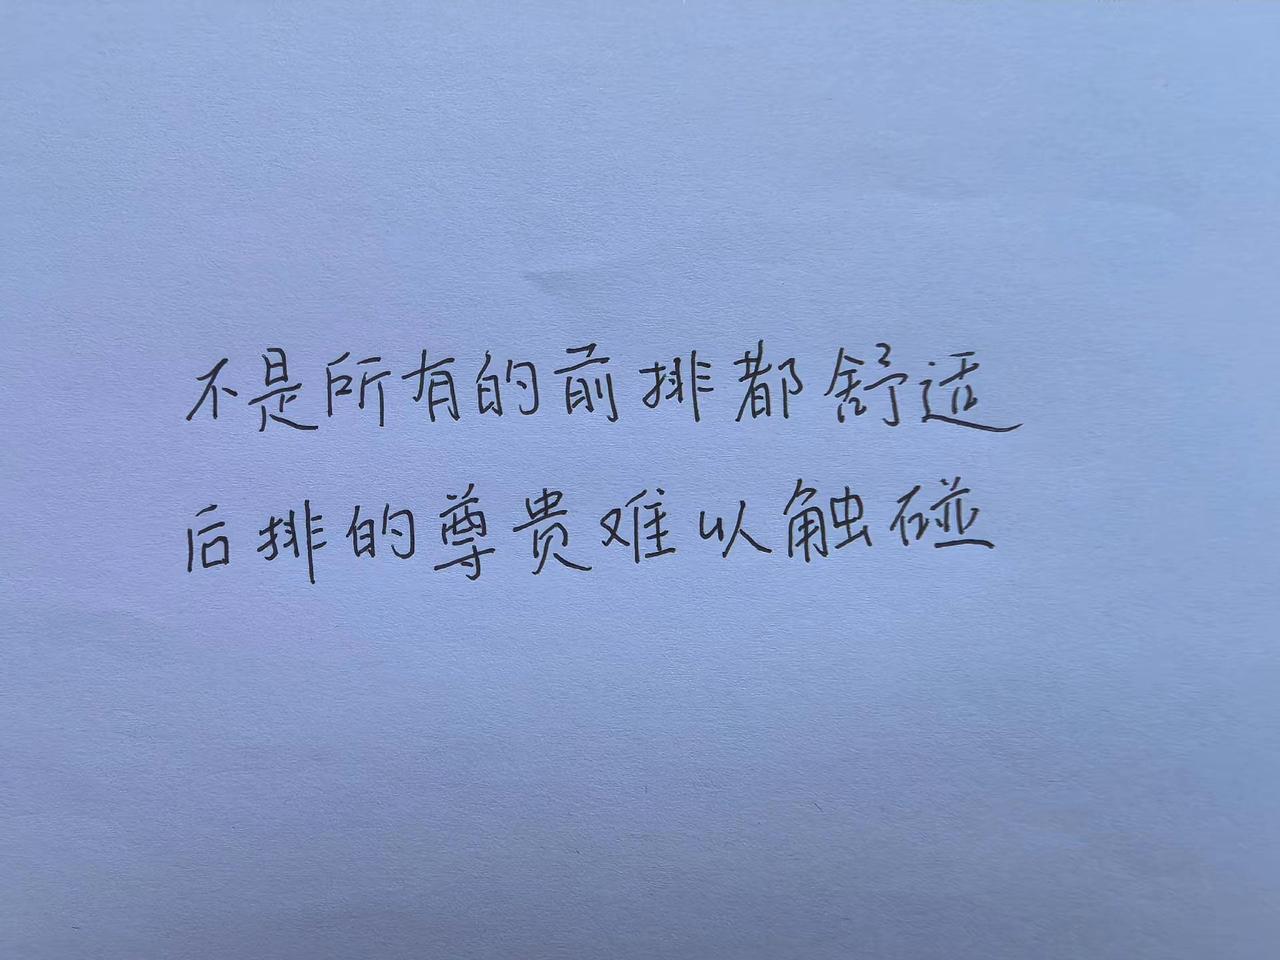 不是所有的前排都舒适
后排的尊贵难以触碰